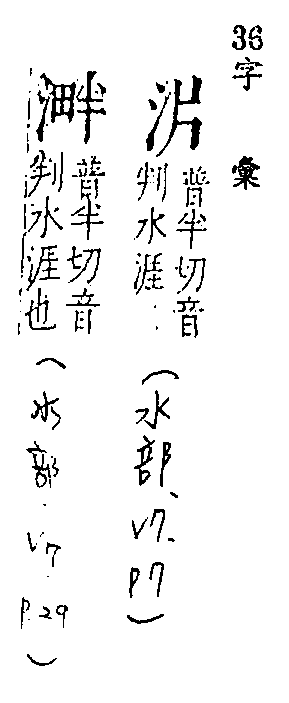 36字 彙
沜 普半切音
判水涯
(水部、V7.P7)
溿 普半切音
判水涯也
(水部.V7.P.29)